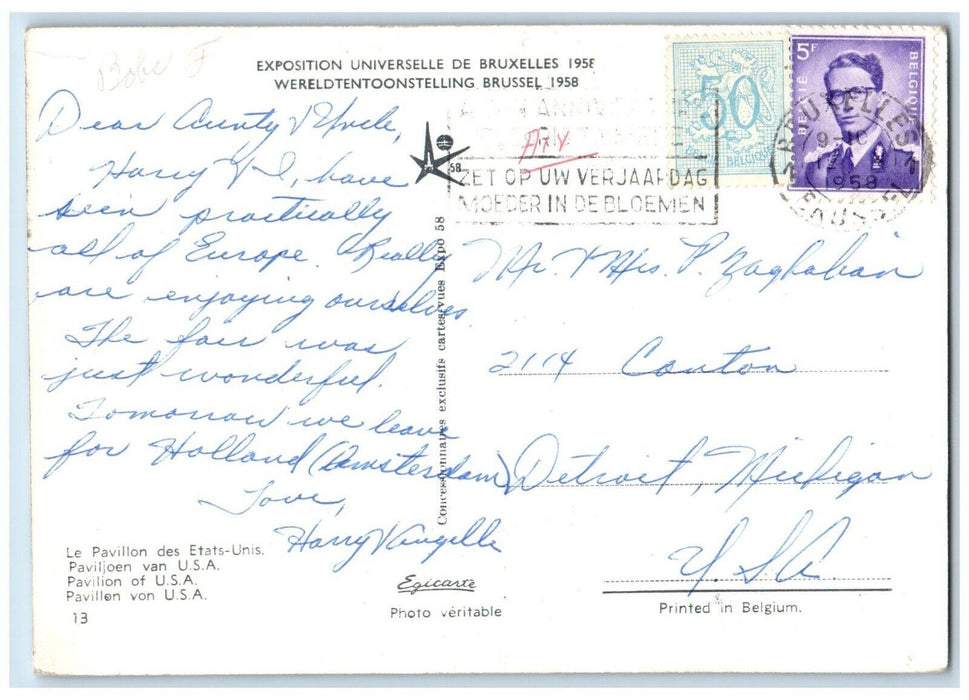 Bobe F
EXPOSITION UNIVERSELLE DE BRUXELLES 1958
WERELDTENTOONSTELLING BRUSSEL 1958
Dear Aunty & Uncle,
Harry & I, have
seen practically
all of Europe. Really
are enjoying ourselves.
The fair was
just wonderful.
Tomorrow we leave
for Holland (Amsterdam)
Love,
Harry &
58
ZET OP UW VERJAARDAG
MOEDER IN DE BLOEMEN
50
BELGIQUE
5F
BELGIE BELGIQUE
BRUXELLES
1958
BRUSSEL
Concessionnaires exclusifs cartes/vues Expo 58
Mr. & Mrs. P. Zaghabian
2114 Canton
Detroit, Michigan
U.S.A.
Le Pavillon des Etats-Unis.
Paviljoen van U.S.A.
Pavilion of U.S.A.
Pavillon von U.S.A.
13
Egicarte
Photo véritable
Printed in Belgium.